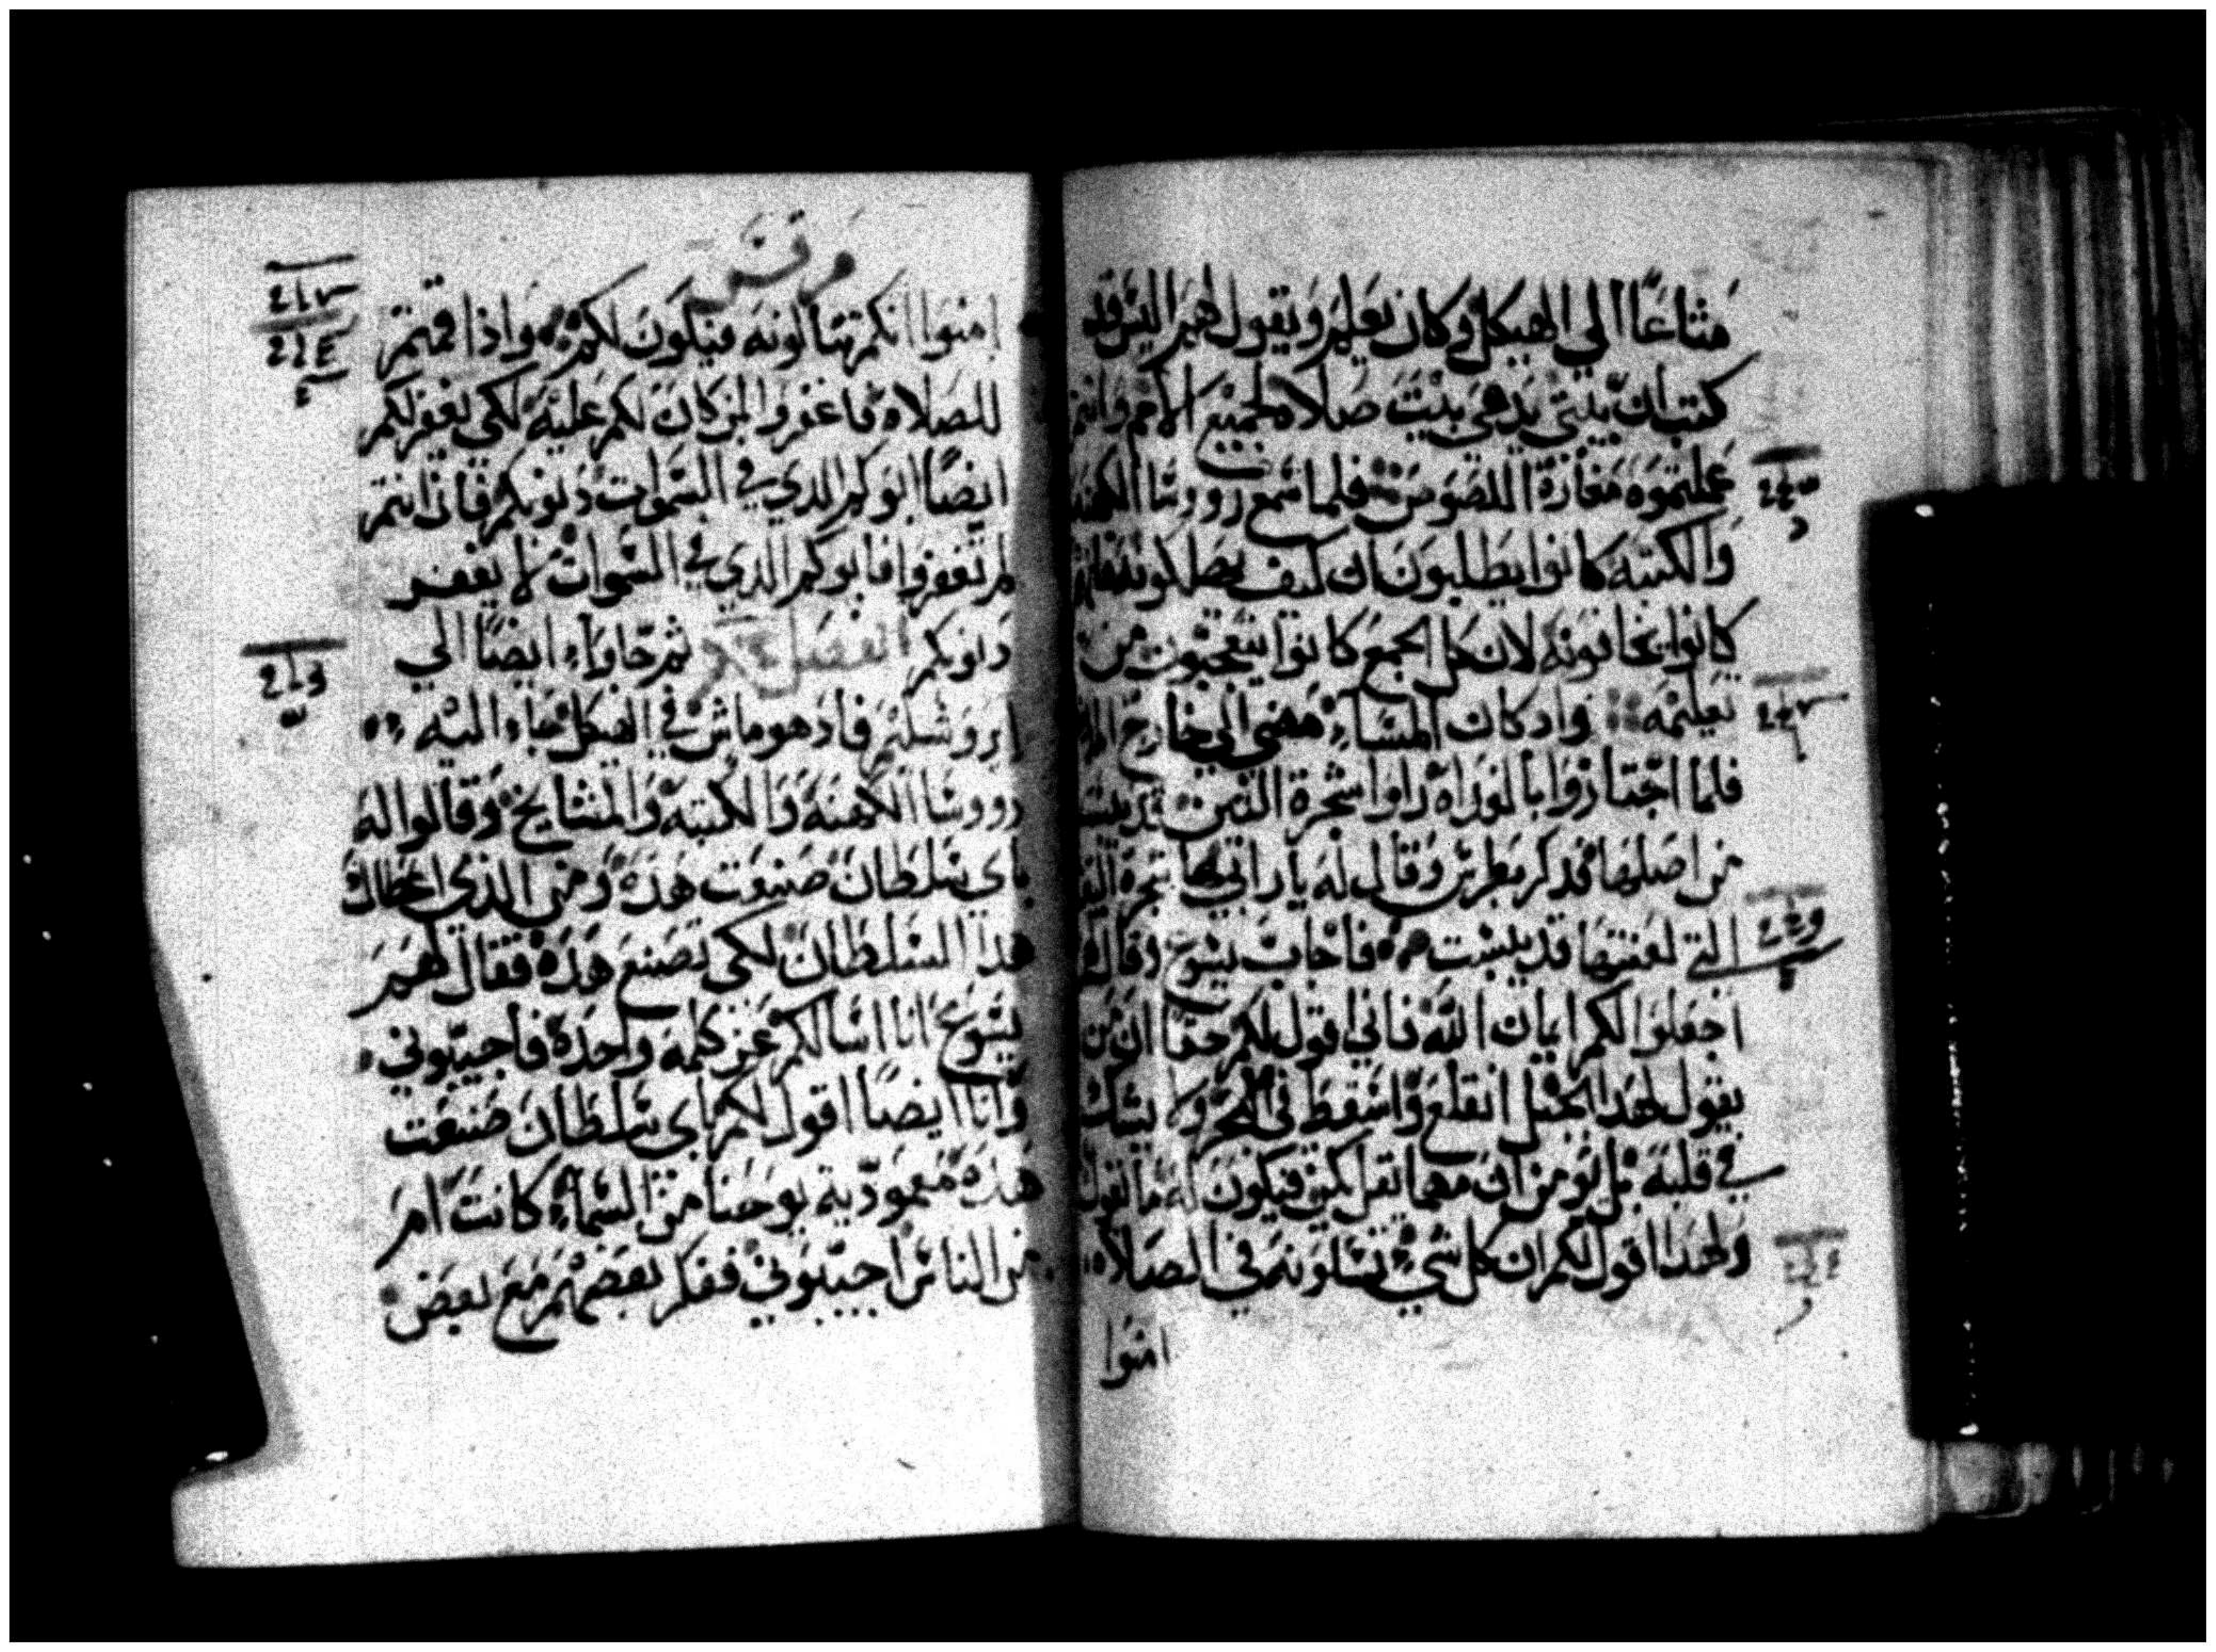 متاعًا الي الهيكل وكان يعلمهم ويقول لهم اليس قد
كتب ان بيتي يدعي بيت صلاه لجميع الامم وانتم
عملتموه مغارة اللصوص فلما سمع رووسا الكهنه
والكتبه كانوا يطلبون ان كيف يهلكونه
كانوا يخافونه لان كل الجمع كانوا يتعجبون من
تعليمه واذ كان المساء مضي الي خارج
فلما اجتازوا بالغداه راوا شجرة التين قد يبست
من اصلها فذكر بطرس وقال له يا رابي ها شجرة
التي لعنتها قد يبست فاجاب يسوع وقال
اجعلوا لكم ايمان الله فاني اقول لكم حقا ان من
يقول لهذا الجبل انقلع واسقط في البحر ولا يشك
في قلبه بل يومن ان مهما تقل يكن فيكون له ما تقول
ولهذا اقول لكم ان كل شي تسلونه في الصلاه
امنوا
مرقس
امنوا انكم تنالونه فيكون لكم واذا قمتم
للصلاه فاغفروا لمن كان لكم عليه لكي يغفر لكم
ايضًا ابوكم الذي في السموات ذنوبكم فان انتم
لم تغفروا فابوكم الذي في السموات لا يغفر
ذنوبكم الفصل ثم جاواء ايضًا الي
ايروشليم فاذ هو ماش في الهيكل جاء اليه
رووسا الكهنه والكتبه والمشايخ وقالوا له
باي سلطان صنعت هذه ومن الذي اعطاك
هذا السلطان لكي تصنع هذه فقال لهم
يسوع انا اسالكم عن كلمه واحده فاجيبوني
وانا ايضًا اقول لكم باي سلطان صنعت
هذه معموديه يوحنا من السماء كانت ام
من الناس اجيبوني ففكر بعضهم مع بعض